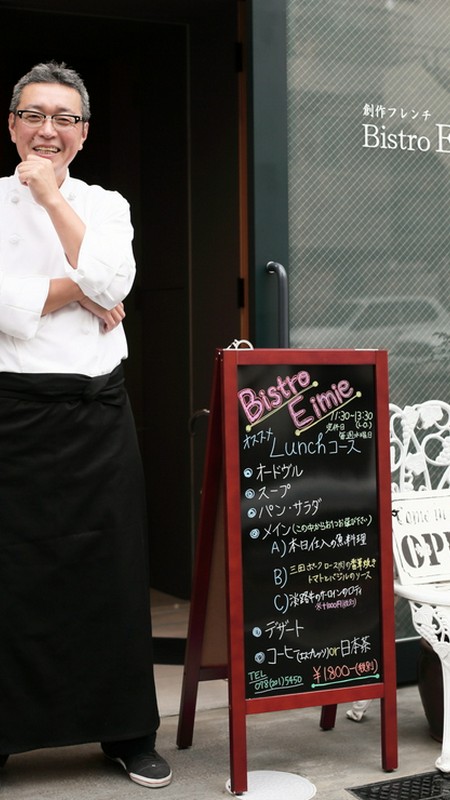 創作フレンチ
Bistro E
Bistro
Eimie
11:30~13:30
(L.O.)
定休日
毎週水曜日
オススメ
Lunchコース
オードヴル
スープ
パン・サラダ
メイン(この中からお1つお選び下さい)
A) 本日仕入の魚料理
B) 三田ポーク ロース肉の香草焼き
トマトとバジルのソース
C) 淡路牛のサーロインのロティ
デザート
コーヒー(エスプレッソ)or日本茶
TEL
078(201)5450
¥1800-(税別)
COME IN
OPE